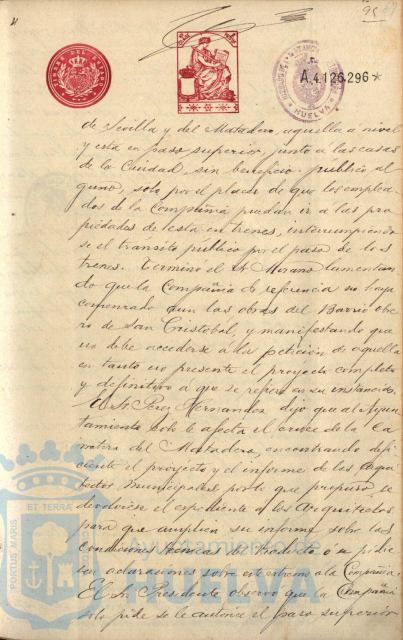 95
TIMBRE DEL ESTADO
A.4.126.296*
HUELVA
de Sevilla y del Matadero, aquella a nivel
y esta en paso superior, junto a las casas
de la Ciudad, sin beneficio público al
guno, solo por el placer de que los emplea
dos de la Compañia puedan ir a las pro
piedades de esta en trenes, interrumpiendo
se el transito publico por el paso de los
trenes. Terminó el Sr. Morano lamentan
do que la Compañia de referencia no haya
comenzado aun las obras del Barrio obre
ro de San Cristobal, y manifestando que
no debe accederse á la petición de aquella
en tanto no presente el proyecto completo
y definitivo a que se refiere en su instancia.
El Sr. Perez Hernandez dijo que al Ayun
tamiento solo le afecta el cruce de la Ca
rretera del Matadero, encontrando defi
ciente el proyecto y el informe de los Arqui
tectos municipales por lo que propuso se
devolviese el expediente a los Arquitectos
para que amplien su informe sobre las
condiciones técnicas del Viaducto o se pidie
sen aclaraciones sobre este extremo a la Compañia.
El Sr. Presidente observó que la Compañia
solo pide se le autorice el paso superior
PORTUS MARIS
ET TERRÆ
Ayuntamiento de
HUELVA